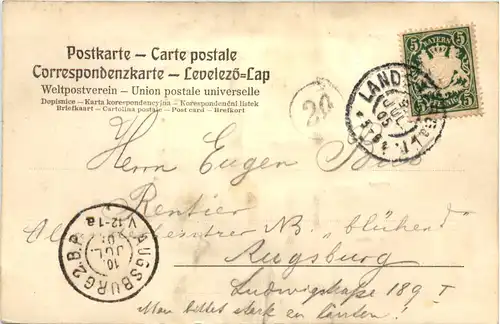 Postkarte — Carte postale
Correspondenzkarte — Levelező-Lap
Weltpostverein — Union postale universelle
Dopisnice — Karta korespondencyjna — Korespondenční listek
Briefkaart — Cartolina postale — Post card — Brefkort
5 BAYERN 5
5 5
LAND
JUL
05
20
Herrn Eugen
Rentier
NB. „blühend"
Augsburg
Ludwigstraße 189 I
Man bittet stark en läuten!
AUGSBURG 2.B.P.
10
JUL
V.12-1a